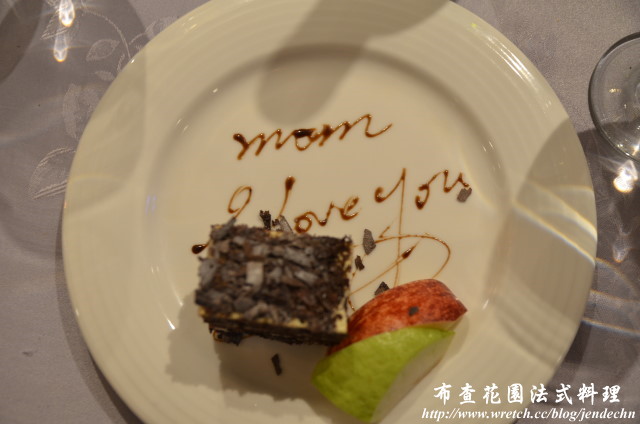 mom
I love you
布查花園法式料理
http://www.wretch.cc/blog/jendechn